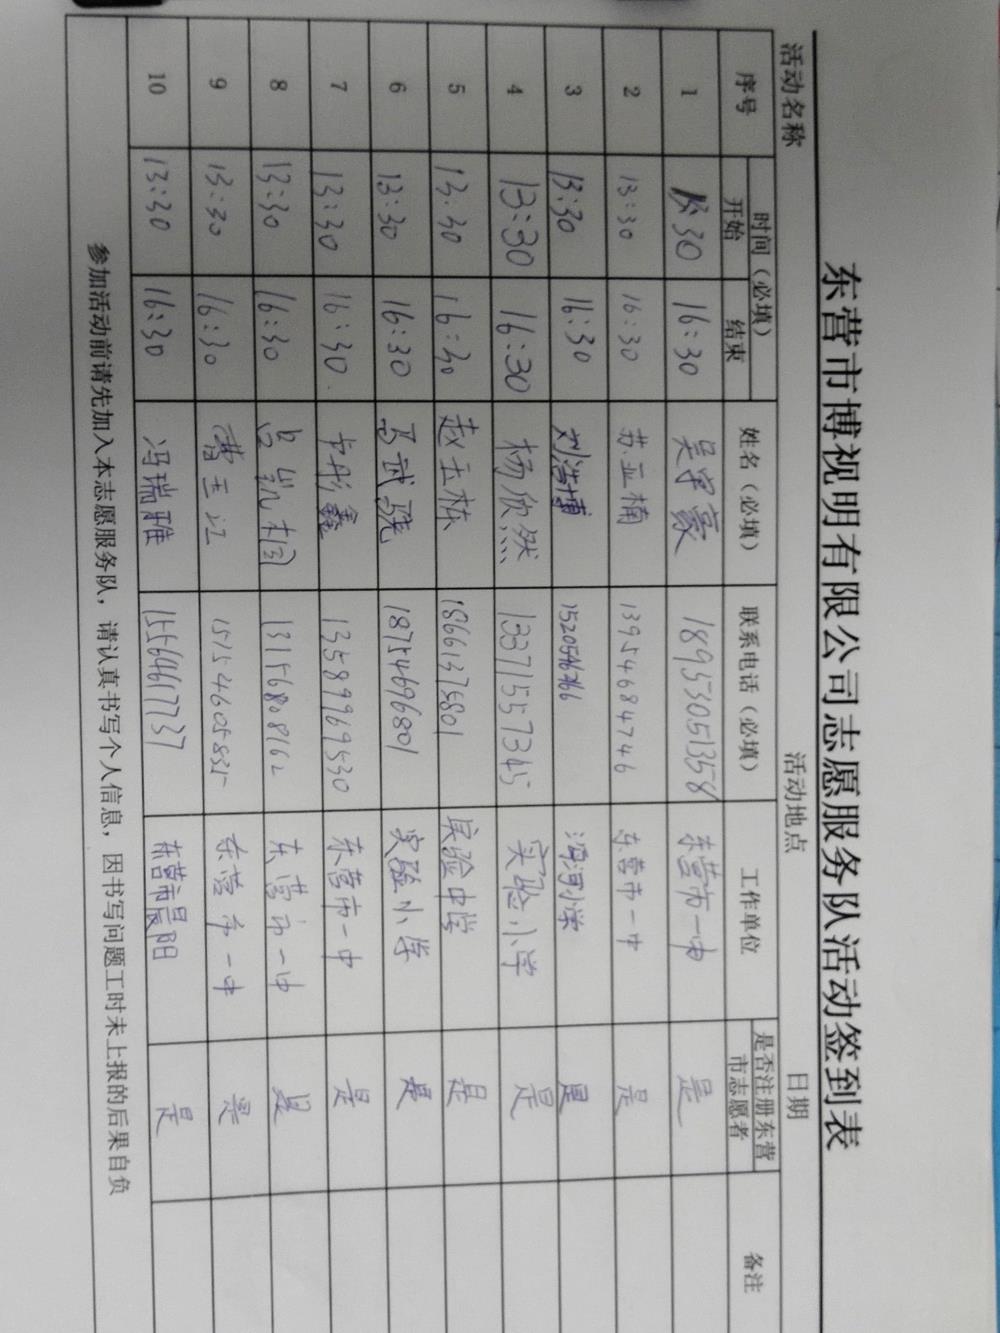 东营市博视明有限公司志愿服务队活动签到表
活动名称 活动地点 日期
序号 时间（必填） 姓名（必填） 联系电话（必填） 工作单位 是否注册东营市志愿者 备注
开始 结束
1 13:30 16:30 吴宇豪 18953051358 东营市一中 是
2 13:30 16:30 苏亚楠 13954684746 东营市一中 是
3 13:30 16:30 刘浩博 小学 是
4 13:30 16:30 杨欣然 13371557345 实验小学 是
5 13:30 16:30 赵玉栋 18661375801 实验中学 是
6 13:30 16:30 马武骁 18754696801 实验小学 是
7 13:30 16:30 卢彤鑫 13589969530 东营市一中 是
8 13:30 16:30 吕凯桐 13156808162 东营市一中 是
9 13:30 16:30 曹玉江 15154605835 东营市一中 是
10 13:30 16:30 冯瑞雅 15564617737 东营市晨阳 是
参加活动前请先加入本志愿服务队，请认真书写个人信息，因书写问题工时未上报的后果自负